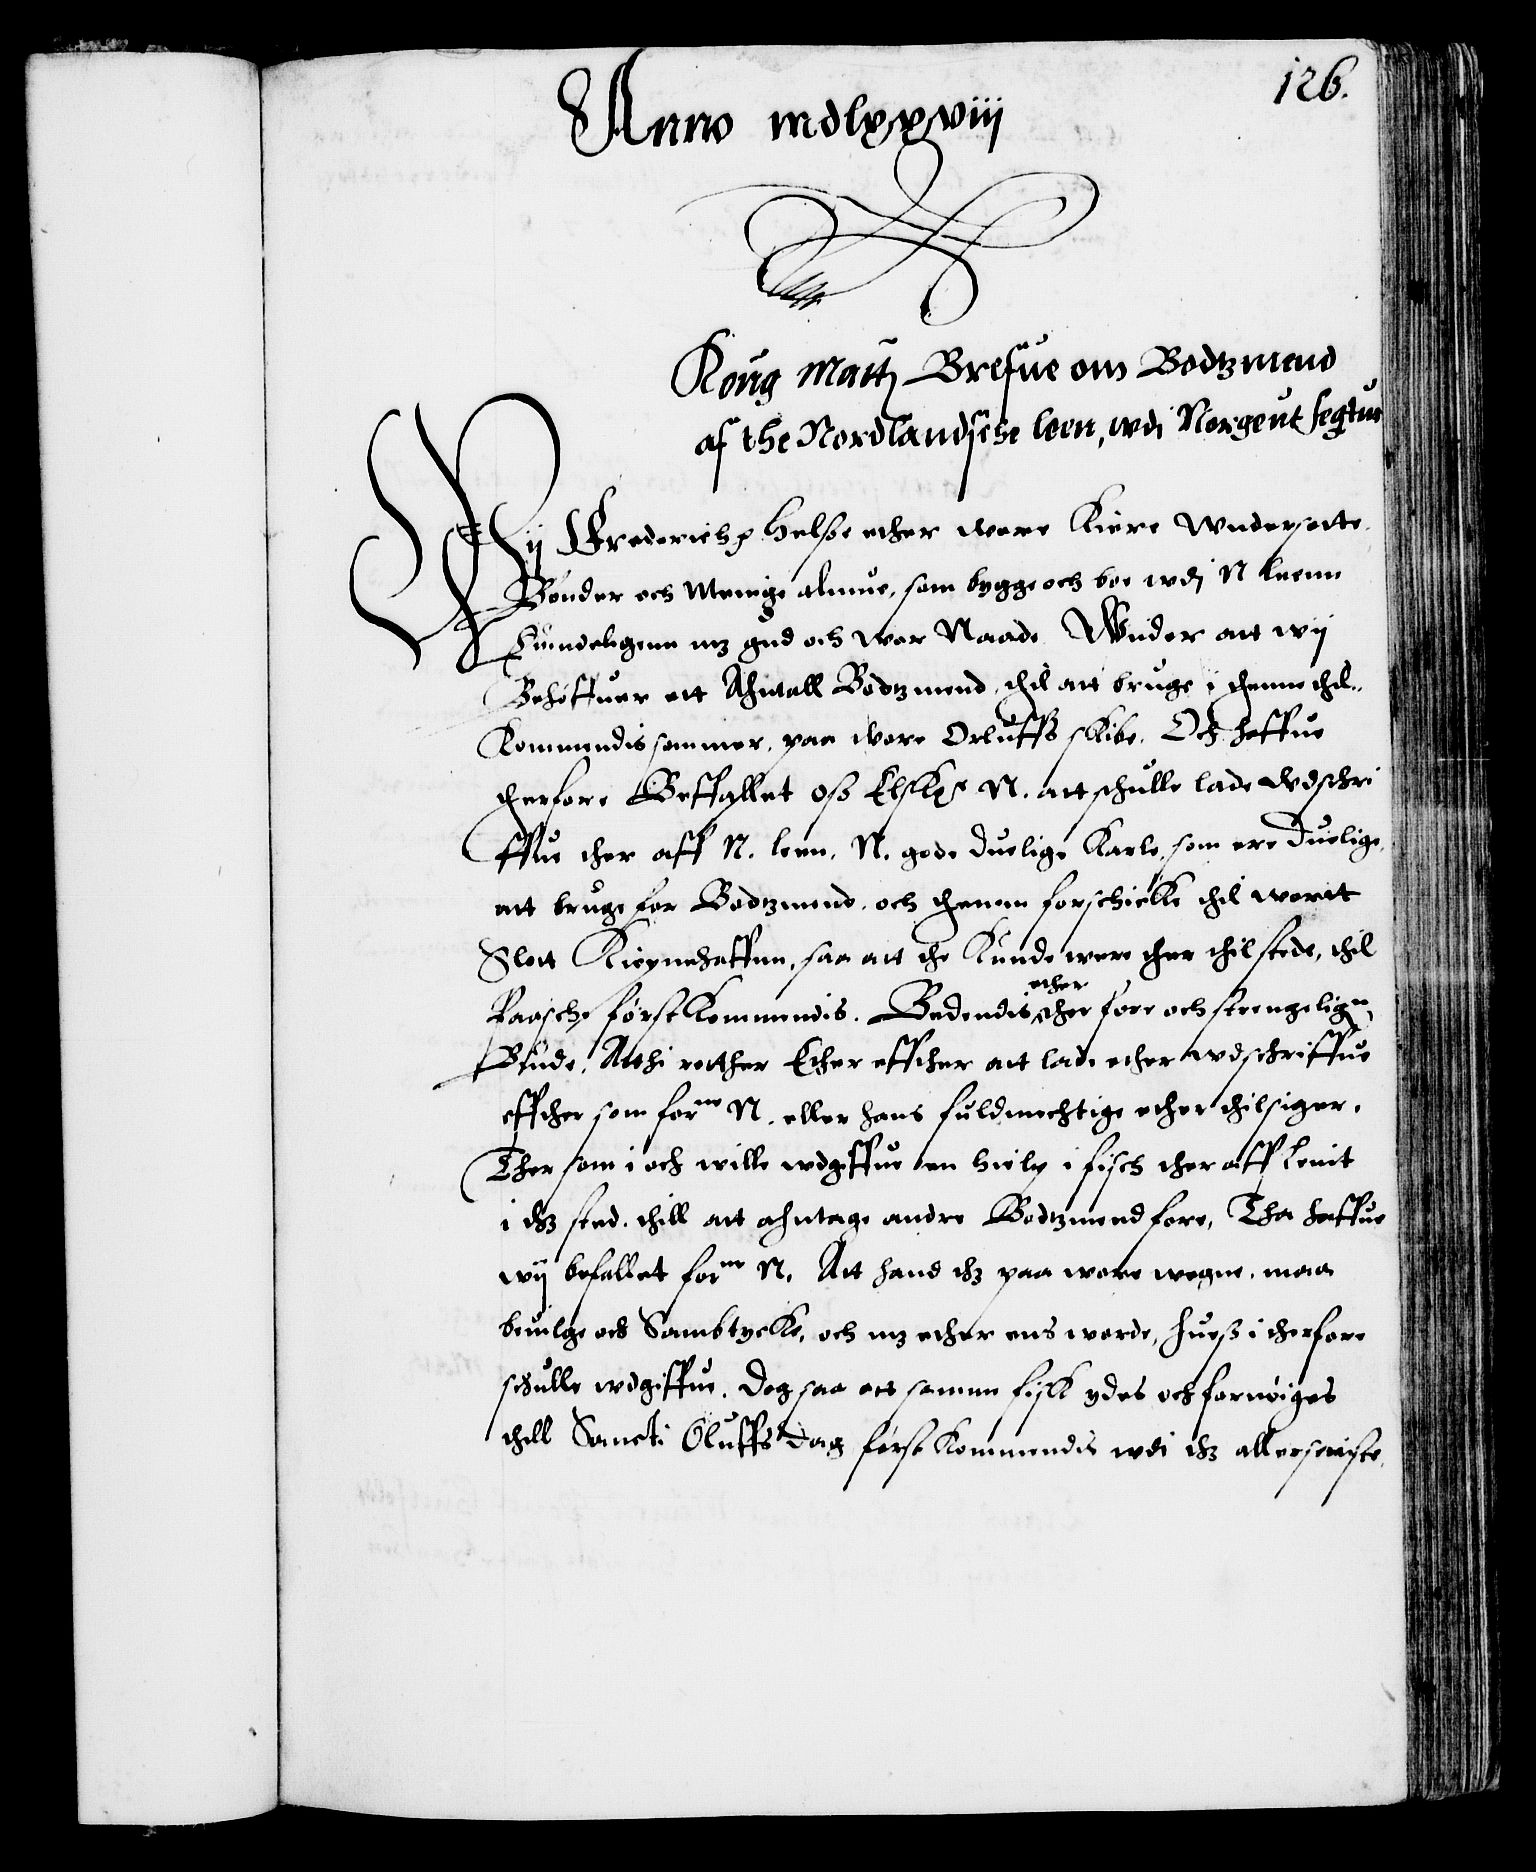 126.
Anno mdlxxviii
Kong Maitz Brefue om Bodtzmend
af the Nordlandsche leen, wdi Norge ut seqtur
Wij Frederich p. Helse ether wore kiere Wndersotte
Bønder och Menige almue, som bygge och boe wdj N leenn
Kiendeligenn mz gud och wor Naade Wnder att wij
Behøffuer ett Ahntall Bodtzmend, thil att bruge i thenne thil
Kommendis sommer, paa wore Orluffs skibe. Och haffue
therfore Beffallet oss Elskel N. att schulle lade wdschri
ffue ther aff N. leen, N. gode duelige Karle, som ere duelige,
att bruge for Bodtzmend, och thennem forschicke thil wortt
Slott Kiøpnehaffnn, saa att the kunde were ther thilstede, thil
Paasche først kommendis. Bedendis ether ther fore och strengelign
Biude, Atthi retther Ether effther att lade ether wdschriffue
effther som forne N. eller hans fuldmechtige ether thilsiger.
Ther som i och wille wdgiffue en hielp i fisch ther aff lenit
i thz sted, thill att ahntage andre Bodtzmend fore, Tha haffue
wij befallet forne N. Att hand thz paa wore wegne, maa
beuilge och Sambtycke, och mz ether ens worde, huess i therfore
schulle wdgiffue. Dog saa att samme fisk ydes och fornøiges
thill Sancti Oluffs dag først kommendis wdi thz allerseniste.